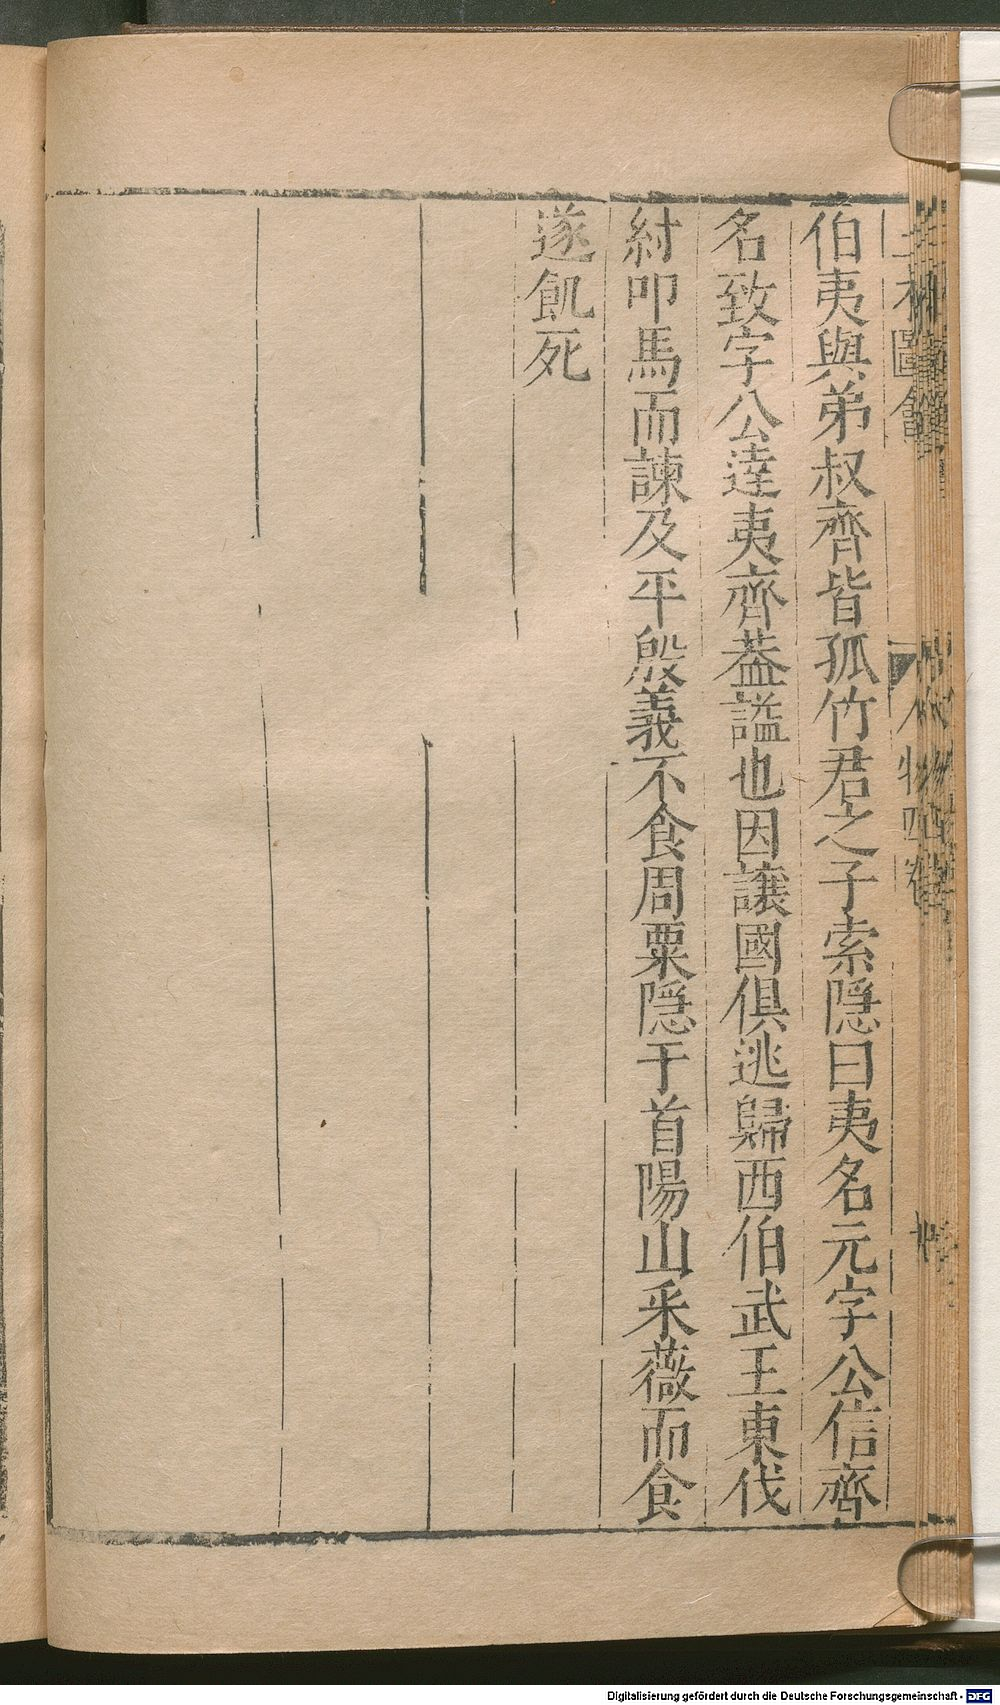 伯夷與弟叔齊皆孤竹君之子索隱曰夷名元字公信齊
名致字公達夷齊葢謚也因讓國俱逃歸西伯武王東伐
紂叩馬而諫及平殷義不食周粟隱于首陽山采薇而食
遂飢死
圖會
人物四卷
Digitalisierung gefördert durch die Deutsche Forschungsgemeinschaft - DFG